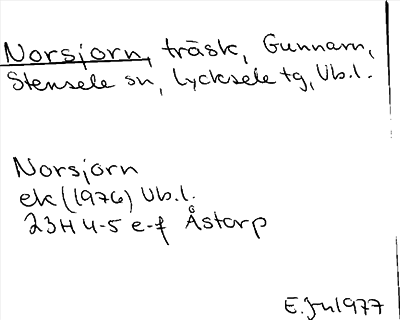 Norsjorn, träsk, Gunnarn,
Stensele sn, Lycksele tg, Vb.l.
Norsjorn
ek (1976) Vb.l.
23H 4-5 e-f Åstorp
E.Jn 1977